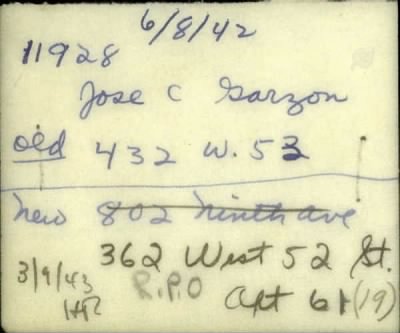 6/8/42
11928
Jose C Garzon
old 432 W. 53
new 802 Ninth ave
362 West 52 St.
3/9/43 R.P.O Apt 61 (19)